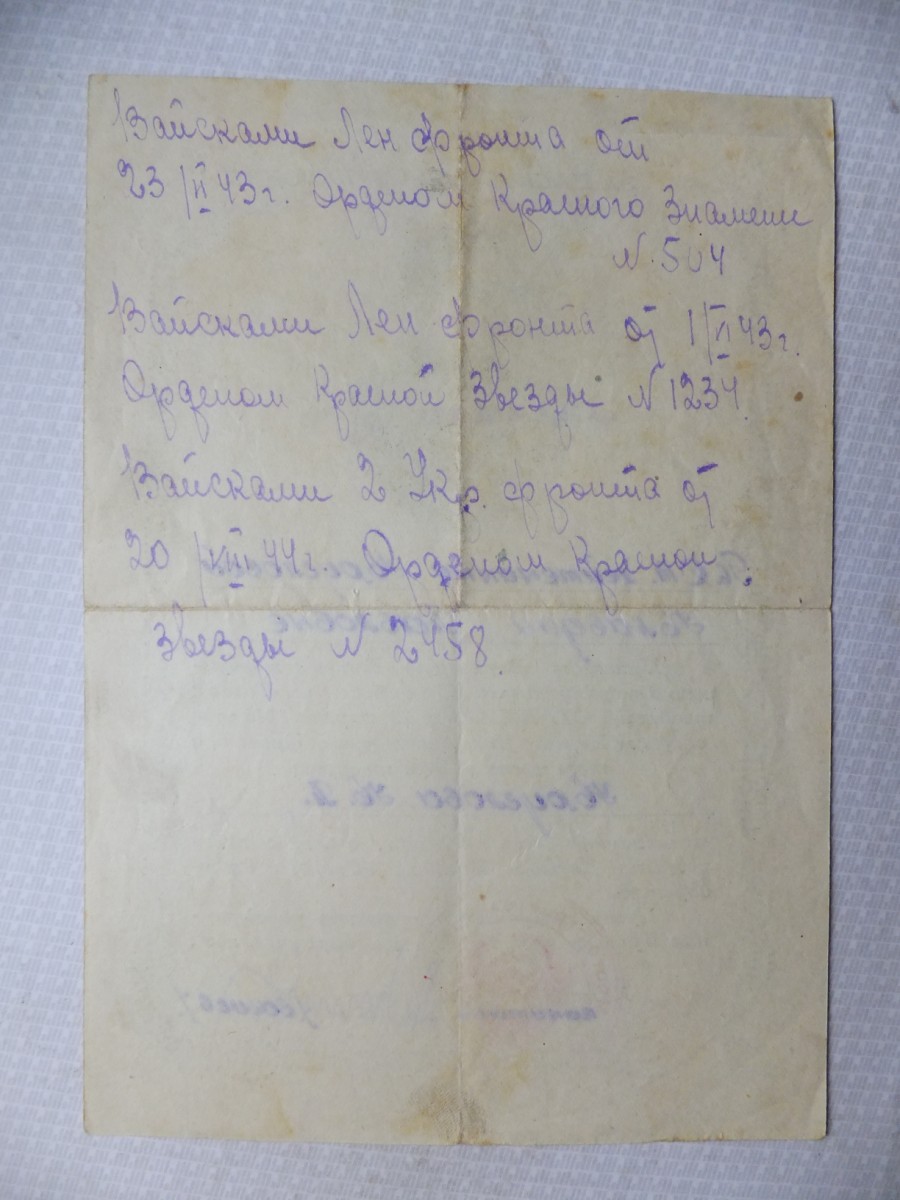 Вайсками Лен фронта от
23/II 43г. Орденом Красного Знамени
N. 504
Вайсками Лен фронта от 1/VI 43г.
Орденом Красной Звезды N 1234
Вайсками 2 Укр. фронта от
20/XIII 44г. Орденом Красной
Звезды N 2458